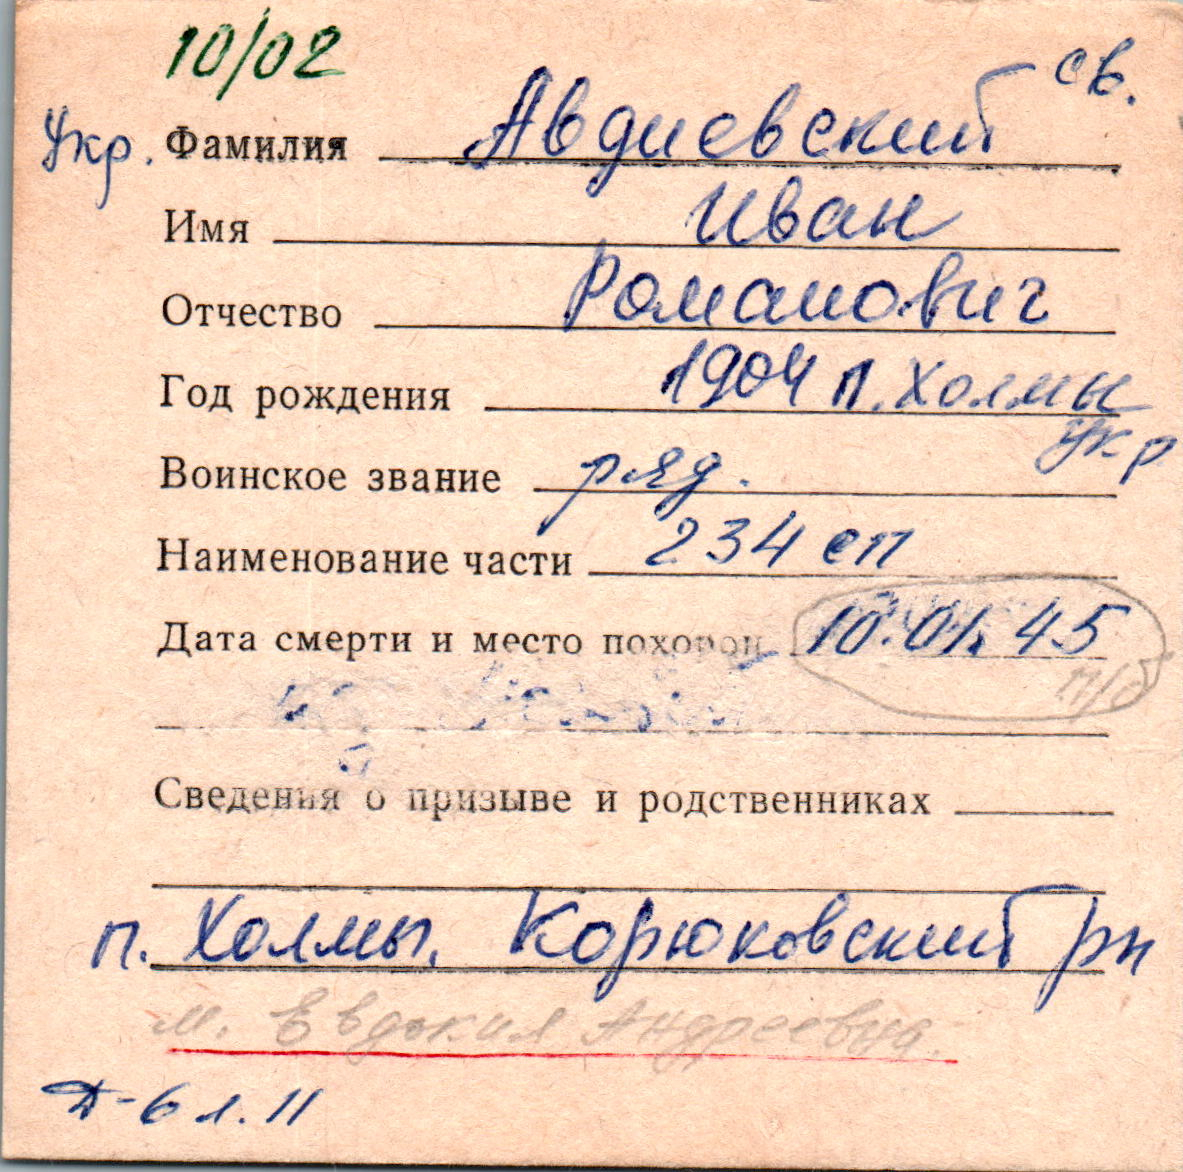 10/02
св.
Укр. Фамилия Авдиевский
Имя Иван
Отчество Романович
Год рождения 1904 п. Холмы
укр
Воинское звание ряд.
Наименование части 234 сп
Дата смерти и место похорон 10.01.45
п/б
Сведения о призыве и родственниках
п. Холмы, Корюковский рн
м. Евдокия Андреевна
Д-6 л. 11